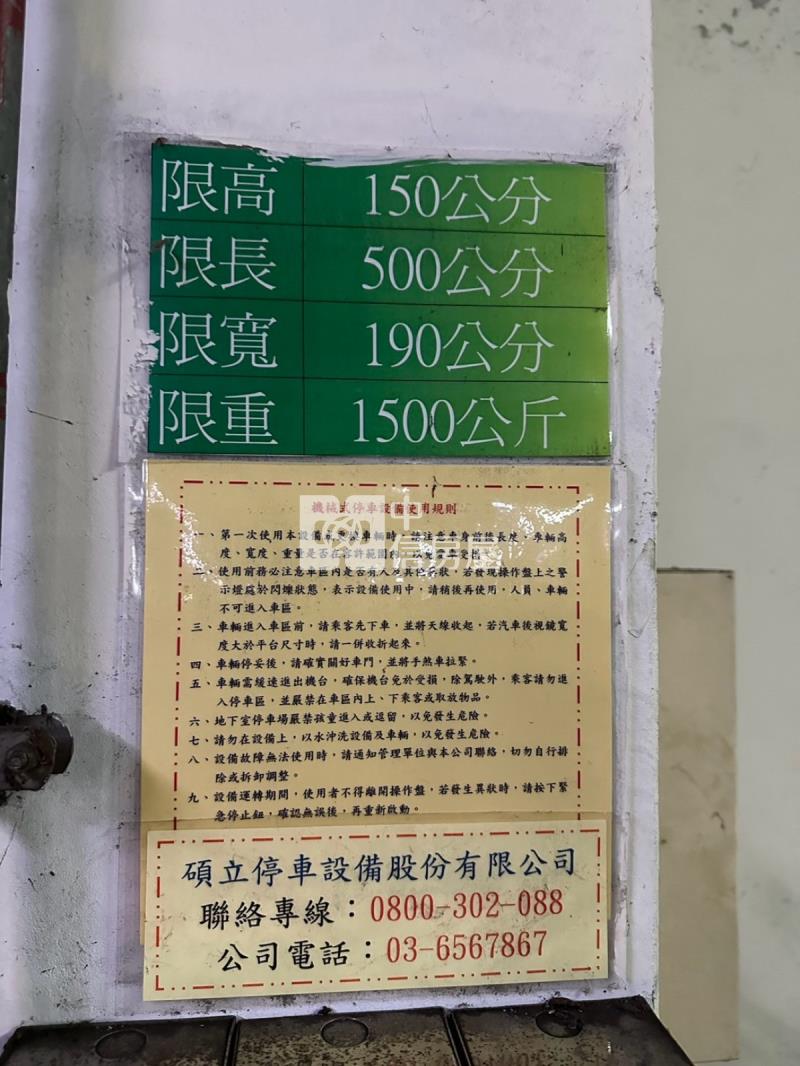 限高 150公分
限長 500公分
限寬 190公分
限重 1500公斤
機械式停車設備使用規則
一、第一次使用本設備或更換車輛時,請注意車身前後長度、車輛高
度、寬度、重量是否在容許範圍內,以免愛車受損。
二、使用前務必注意車區內是否有人及其他異狀,若發現操作盤上之警
示燈處於閃爍狀態,表示設備使用中,請稍後再使用,人員、車輛
不可進入車區。
三、車輛進入車區前,請乘客先下車,並將天線收起,若汽車後視鏡寬
度大於平台尺寸時,請一併收折起來。
四、車輛停妥後,請確實關好車門,並將手煞車拉緊。
五、車輛需緩速進出機台,確保機台免於受損,除駕駛外,乘客請勿進
入停車區,並嚴禁在車區內上、下乘客或取放物品。
六、地下室停車場嚴禁孩童進入或逗留,以免發生危險。
七、請勿在設備上,以水沖洗設備及車輛,以免發生危險。
八、設備故障無法使用時,請通知管理單位與本公司聯絡,切勿自行排
除或拆卸調整。
九、設備運轉期間,使用者不得離開操作盤,若發生異狀時,請按下緊
急停止鈕,確認無誤後,再重新啟動。
碩立停車設備股份有限公司
聯絡專線:0800-302-088
公司電話:03-6567867